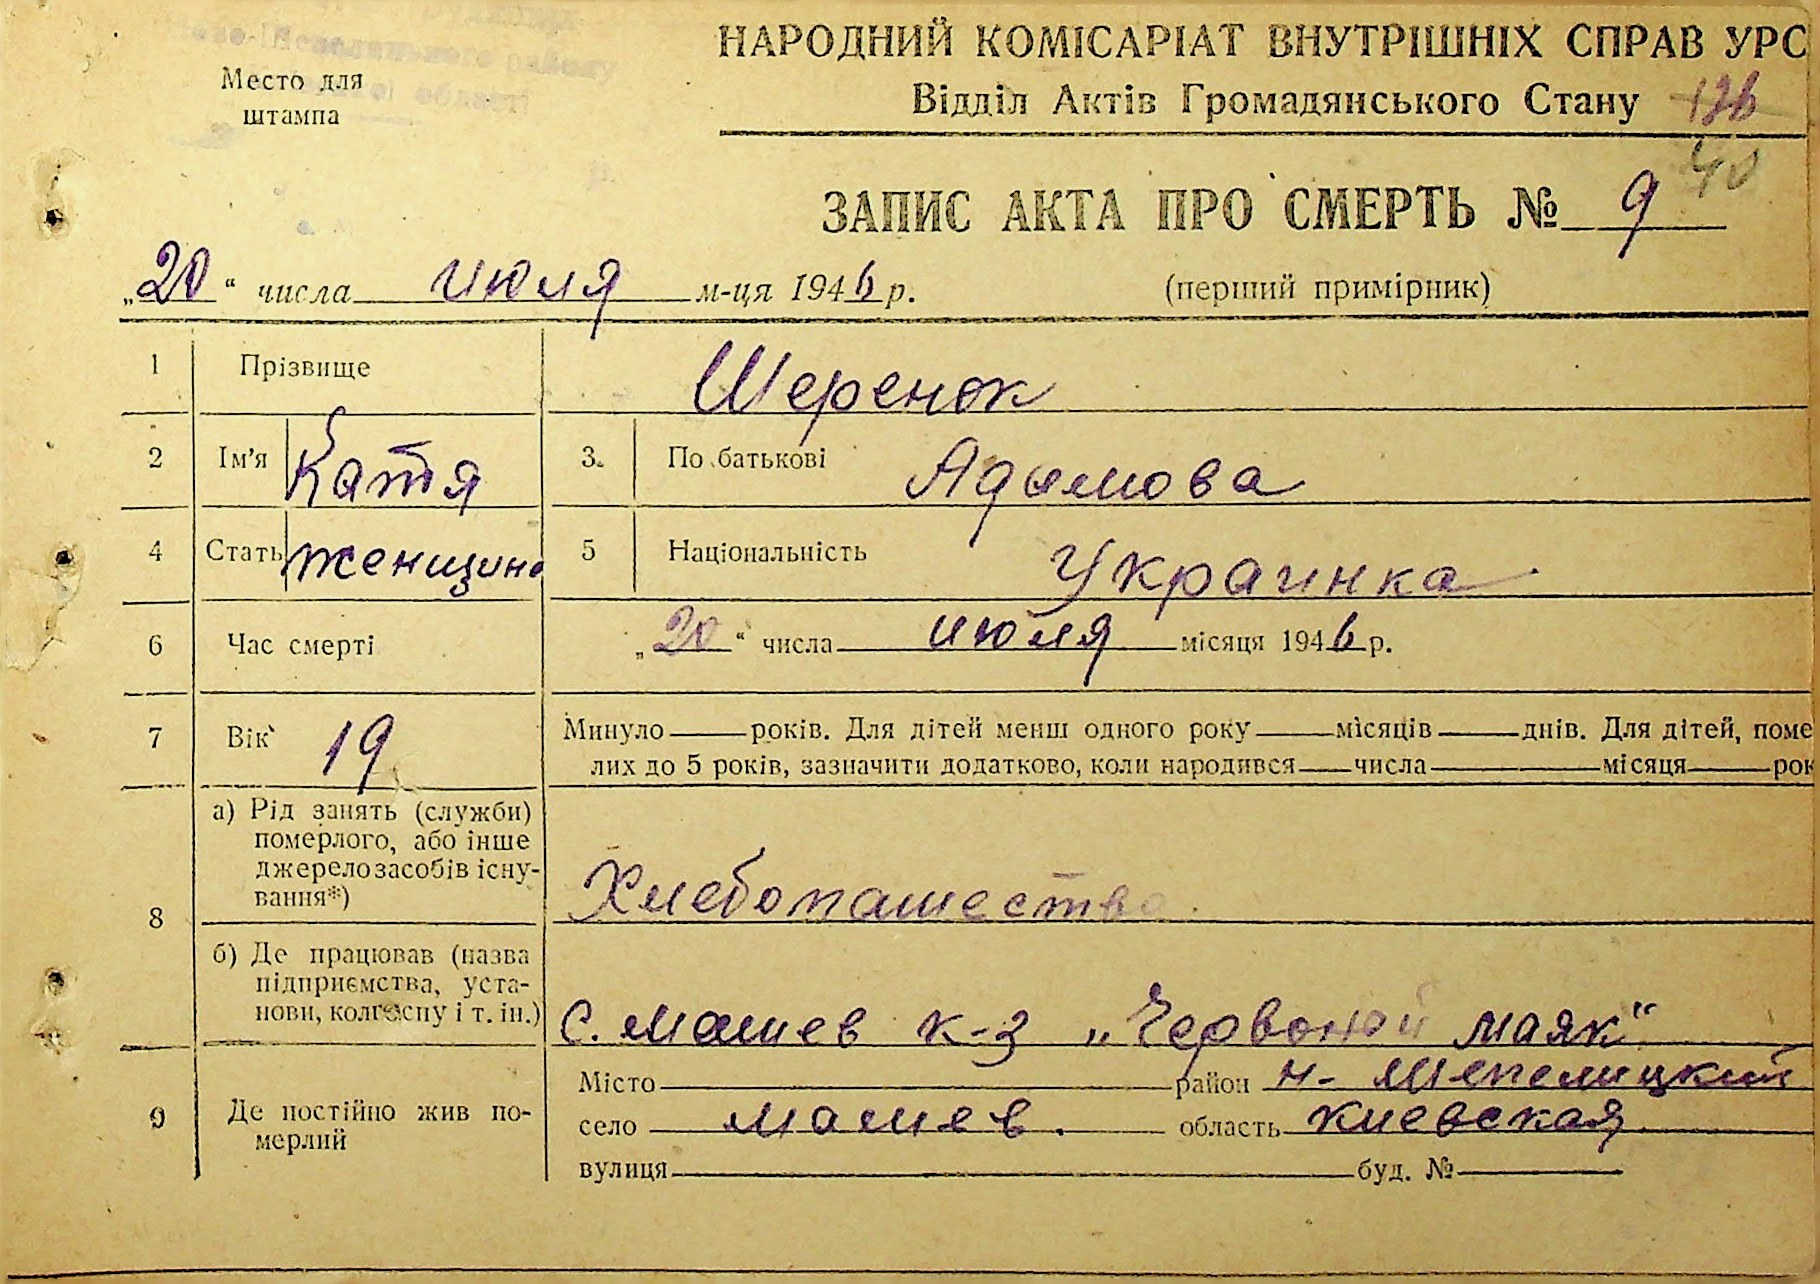 Место для
штампа
НАРОДНИЙ КОМІСАРІАТ ВНУТРІШНІХ СПРАВ УРС
Відділ Актів Громадянського Стану 126
40
ЗАПИС АКТА ПРО СМЕРТЬ № 9
„20“ числа июля м-ця 1946 р. (перший примірник)
1 Прізвище Шеренок
2 Ім'я Катя 3. По батькові Адамова
4 Стать женщина 5 Національність Украинка
6 Час смерті „20“ числа июля місяця 1946 р.
7 Вік 19 Минуло ___ років. Для дітей менш одного року ___ місяців ___ днів. Для дітей, поме
лих до 5 років, зазначити додатково, коли народився ___ числа ___ місяця ___ рок
8 а) Рід занять (служби)
померлого, або інше
джерело засобів існу-
вання*) Хлебопашество
б) Де працював (назва
підприємства, уста-
нови, колгоспу і т. ін.) с. Машев к-з „Червоной маяк“
9 Де постійно жив по-
мерлий
Місто ___ район Н-Шепелицкий
село Машев. область Киевская
вулиця ___ буд. № ___